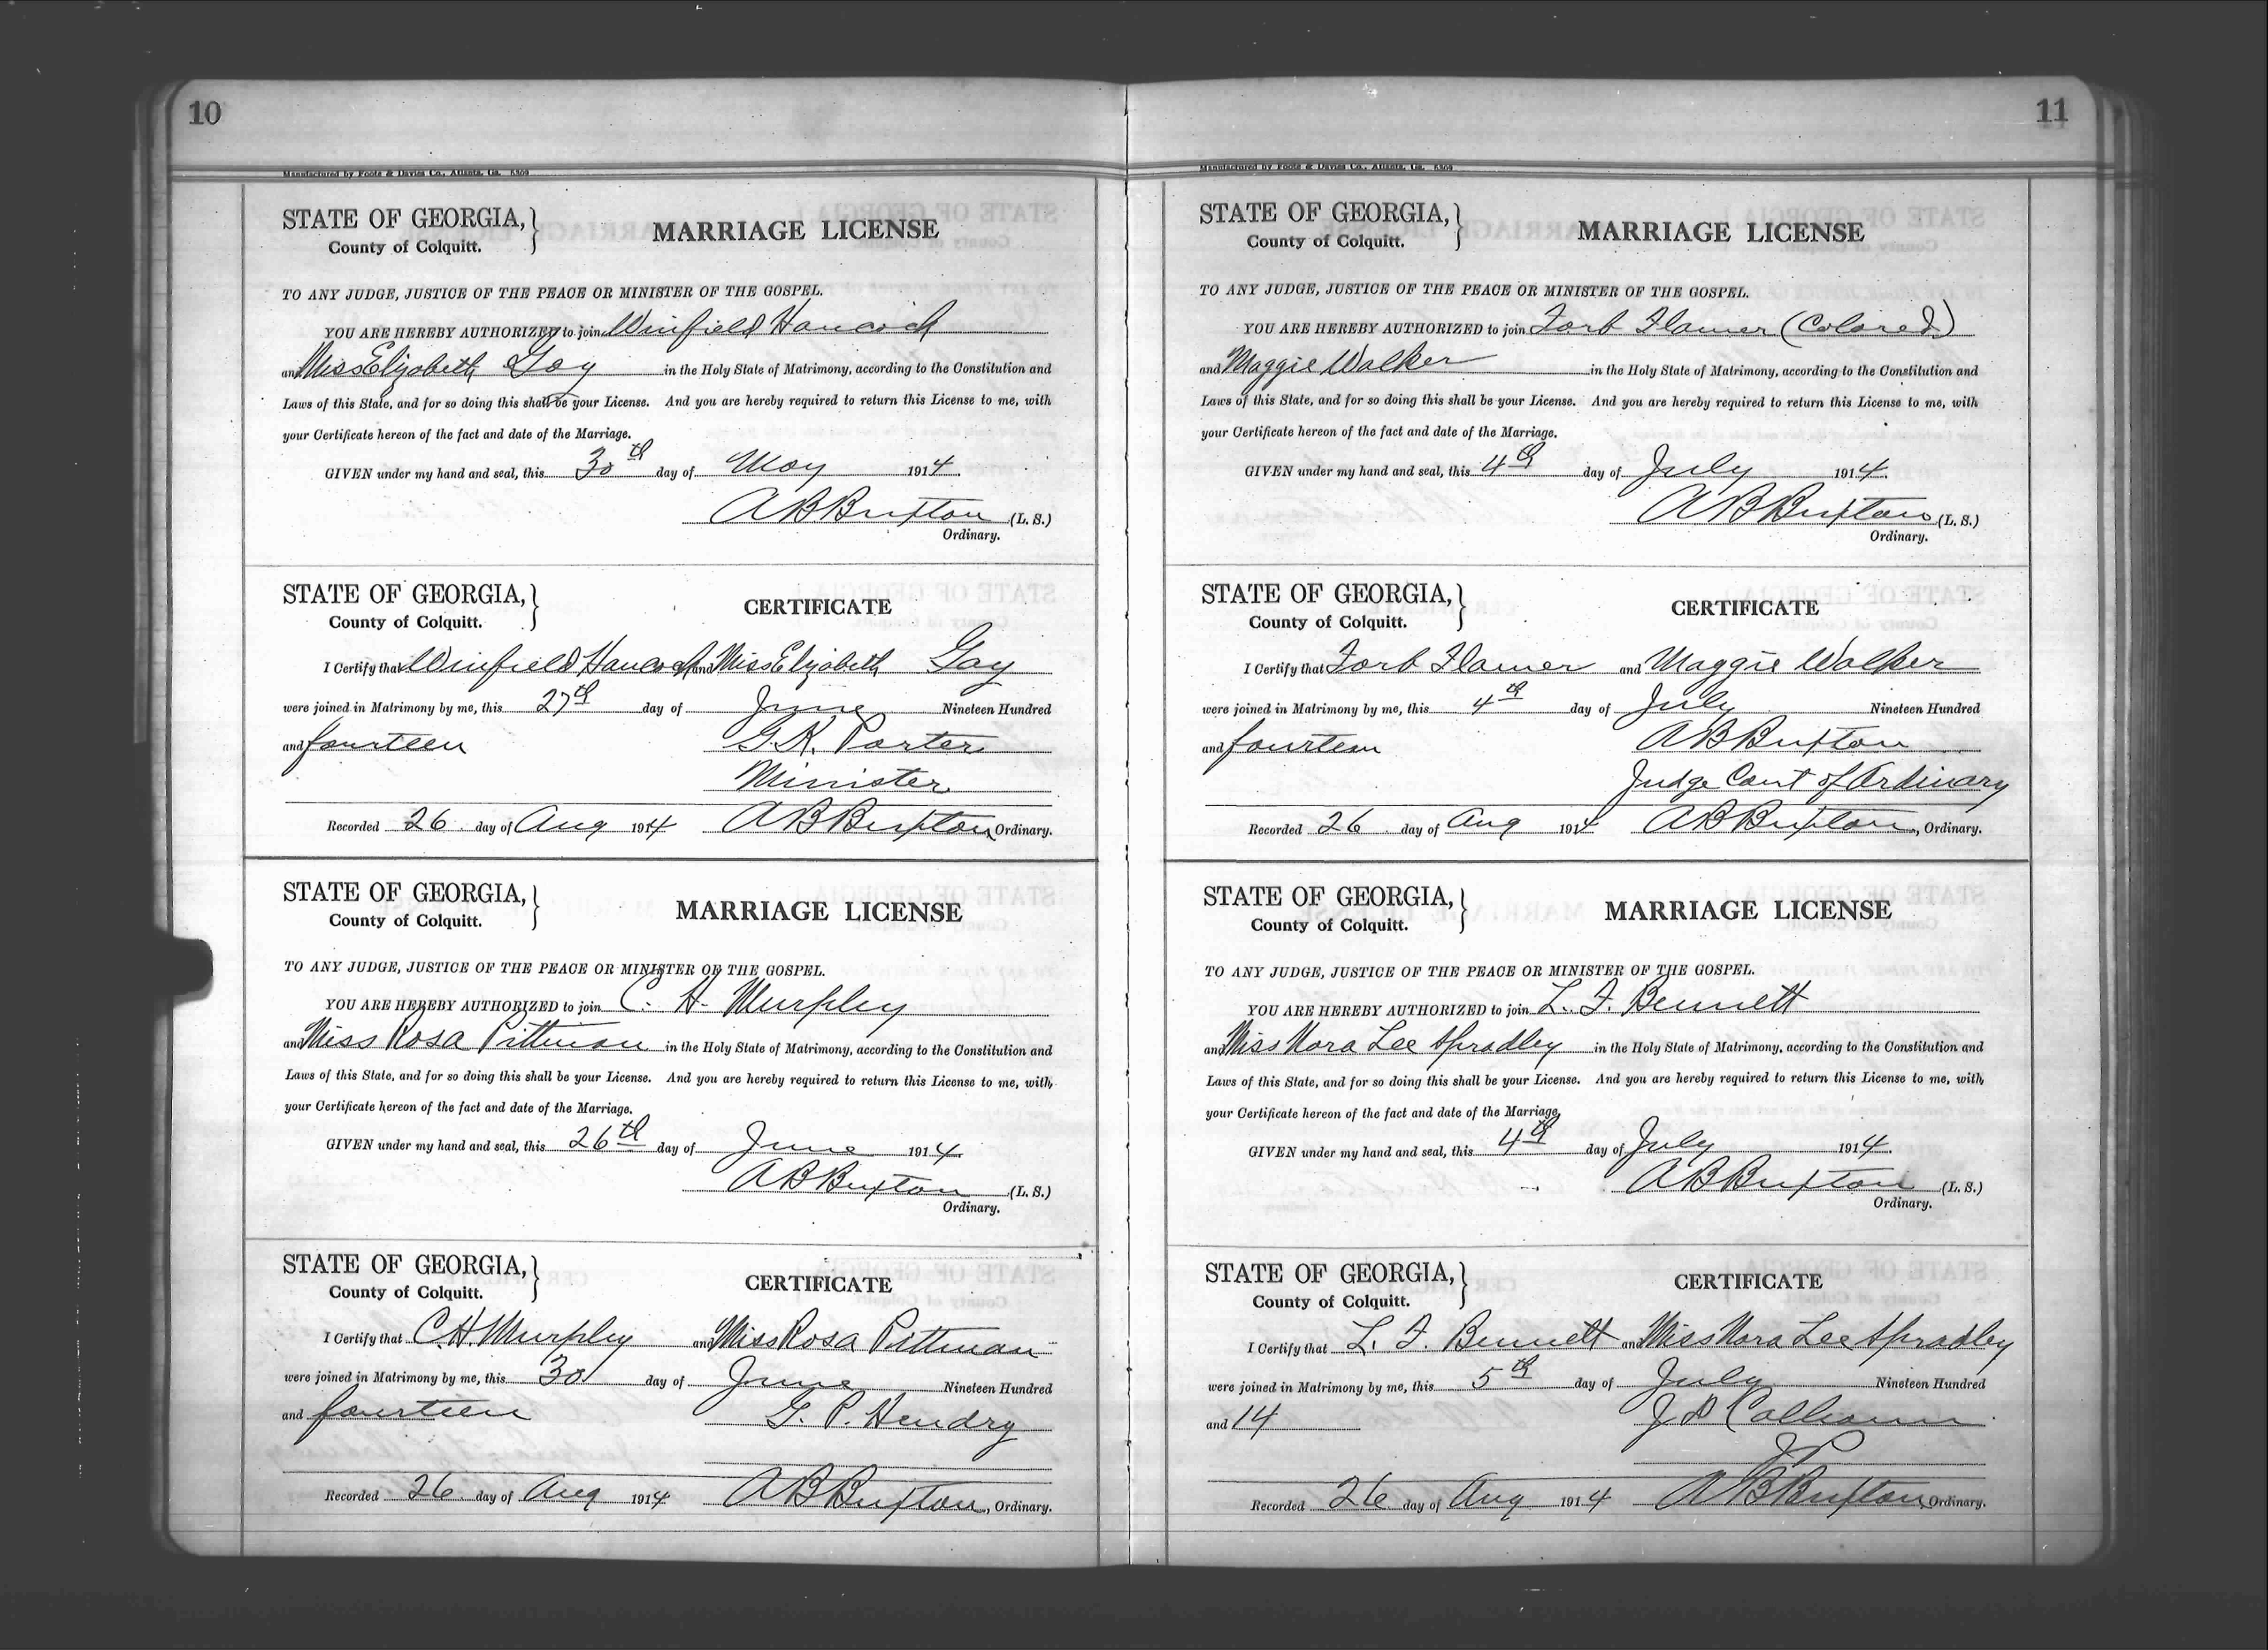 10
Manufactured by Foote & Davies Co., Atlanta, Ga.
STATE OF GEORGIA,
County of Colquitt.
MARRIAGE LICENSE
TO ANY JUDGE, JUSTICE OF THE PEACE OR MINISTER OF THE GOSPEL.
YOU ARE HEREBY AUTHORIZED to join Winfield Hancock
and Miss Elizabeth Gay in the Holy State of Matrimony, according to the Constitution and
Laws of this State, and for so doing this shall be your License. And you are hereby required to return this License to me, with
your Certificate hereon of the fact and date of the Marriage.
GIVEN under my hand and seal, this 30th day of May 1914.
A B Buxton (L. S.)
Ordinary.
STATE OF GEORGIA,
County of Colquitt.
CERTIFICATE
I Certify that Winfield Hancock and Miss Elizabeth Gay
were joined in Matrimony by me, this 27th day of June Nineteen Hundred
and fourteen G. K. Porter
Minister
Recorded 26 day of Aug 1914 A B Buxton, Ordinary.
STATE OF GEORGIA,
County of Colquitt.
MARRIAGE LICENSE
TO ANY JUDGE, JUSTICE OF THE PEACE OR MINISTER OF THE GOSPEL.
YOU ARE HEREBY AUTHORIZED to join C. H. Murphey
and Miss Rosa Pittman in the Holy State of Matrimony, according to the Constitution and
Laws of this State, and for so doing this shall be your License. And you are hereby required to return this License to me, with
your Certificate hereon of the fact and date of the Marriage.
GIVEN under my hand and seal, this 26th day of June 1914.
A B Buxton (L. S.)
Ordinary.
STATE OF GEORGIA,
County of Colquitt.
CERTIFICATE
I Certify that C. H. Murphey and Miss Rosa Pittman
were joined in Matrimony by me, this 30 day of June Nineteen Hundred
and fourteen G. P. Hendry
Recorded 26 day of Aug 1914 A B Buxton, Ordinary.
11
Manufactured by Foote & Davies Co., Atlanta, Ga.
STATE OF GEORGIA,
County of Colquitt.
MARRIAGE LICENSE
TO ANY JUDGE, JUSTICE OF THE PEACE OR MINISTER OF THE GOSPEL.
YOU ARE HEREBY AUTHORIZED to join Torb Flamer (Colored)
and Maggie Walker in the Holy State of Matrimony, according to the Constitution and
Laws of this State, and for so doing this shall be your License. And you are hereby required to return this License to me, with
your Certificate hereon of the fact and date of the Marriage.
GIVEN under my hand and seal, this 4th day of July 1914.
A B Buxton (L. S.)
Ordinary.
STATE OF GEORGIA,
County of Colquitt.
CERTIFICATE
I Certify that Torb Flamer and Maggie Walker
were joined in Matrimony by me, this 4th day of July Nineteen Hundred
and fourteen A B Buxton
Judge Court of Ordinary
Recorded 26 day of Aug 1914 A B Buxton, Ordinary.
STATE OF GEORGIA,
County of Colquitt.
MARRIAGE LICENSE
TO ANY JUDGE, JUSTICE OF THE PEACE OR MINISTER OF THE GOSPEL.
YOU ARE HEREBY AUTHORIZED to join L. F. Bennett
and Miss Nora Lee Spradley in the Holy State of Matrimony, according to the Constitution and
Laws of this State, and for so doing this shall be your License. And you are hereby required to return this License to me, with
your Certificate hereon of the fact and date of the Marriage.
GIVEN under my hand and seal, this 4th day of July 1914.
A B Buxton (L. S.)
Ordinary.
STATE OF GEORGIA,
County of Colquitt.
CERTIFICATE
I Certify that L. F. Bennett and Miss Nora Lee Spradley
were joined in Matrimony by me, this 5th day of July Nineteen Hundred
and 14 J D Calhoun
J P
Recorded 26 day of Aug 1914 A B Buxton, Ordinary.